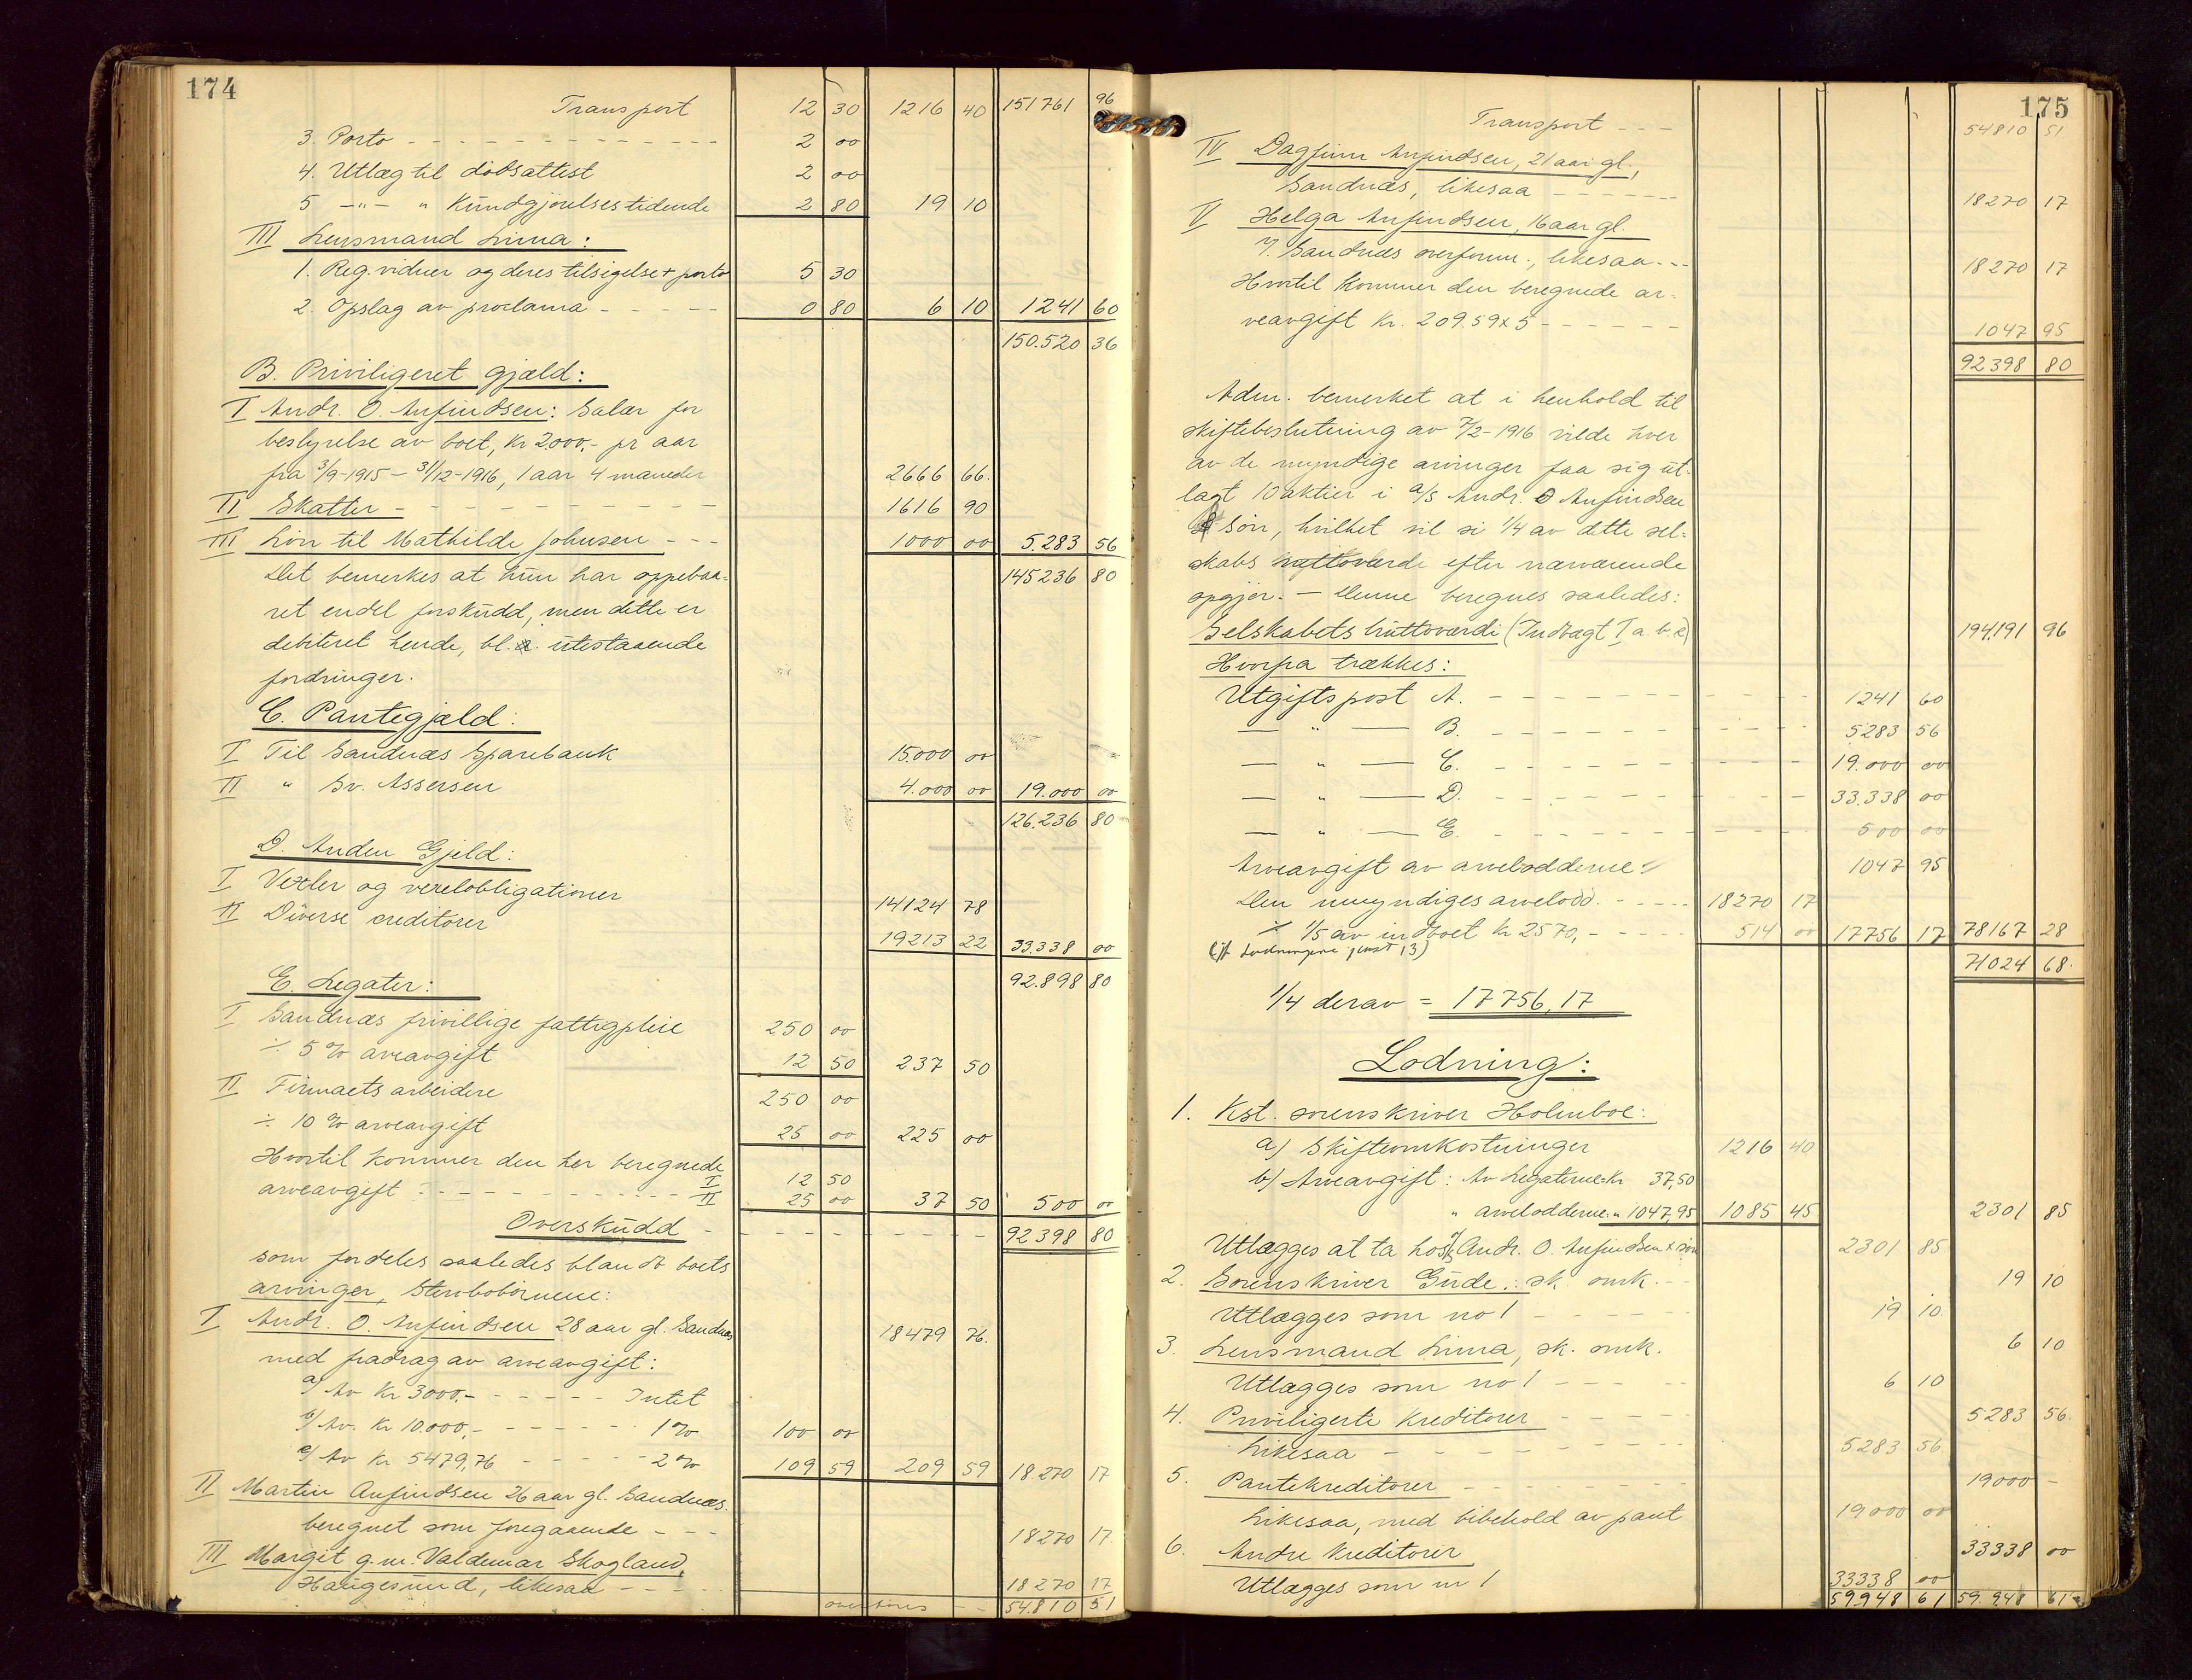 174
Transport 12 30 1216 40 151761 96
3. Porto 2 00
4. Utlæg til dødsattest 2 00
5 —"— " Kundgjørelsestidende 2 80 19 10
III Lensmand Lima:
1. Reg.vidner og deres tilsigelse + porto 5 30
2. Opslag av proclama 0 80 6 10 1241 60
150.520 36
B. Priviligeret gjæld:
I Andr. O. Anfindsen: Salær for
bestyrelse av boet, kr 2000,- pr aar
fra 3/9-1915 – 31/12-1916, 1 aar 4 maaneder 2666 66.
II Skatter 1616 90
III Løn til Mathilde Johnsen 1000 00 5.283 56
Det bemerkes at hun har oppebaa- 145236 80
ret endel forskudd, men dette er
debiteret hende, bl. a. utestaaende
fordringer.
C. Pantegjæld:
I Til Sandnæs Sparebank 15.000 00
II " Sv. Assersen 4.000 00 19.000 00
126.236 80
D. Anden Gjeld:
I Vexler og vexelobligationer 14124 78
II Diverse creditorer 19213 22 33.338 00
92.898 80
E. Legater:
I Sandnæs frivillige fattigpleie 250 00
÷ 5 % arveavgift 12 50 237 50
II Firmaets arbeidere 250 00
÷ 10 % arveavgift 25 00 225 00
Hvortil kommer den her beregnede I 12 50
arveavgift II 25 00 37 50 500 00
Overskudd 92398 80
som fordeles saaledes blandt boets
arvinger, Stervbobørnene:
I Andr. O. Anfindsen 28 aar gl. Sandnæs 18479 76.
med fradrag av arveavgift:
a) Av Kr 3000,- Intet
b) Av. Kr 10.000,- 1 % 100 00
c) Av Kr 5479,76 2 % 109 59 209 59 18270 17
II Martin Anfindsen 26 aar gl. Sandnæs.
beregnet som foregaaende 18270 17
III Margit g.m. Valdemar Skogland,
Haugesund, likesaa 18270 17
overføres 54.810 51
175
Transport 54810 51
IV Dagfinn Anfindsen, 21 aar gl,
Sandnæs, likesaa 18270 17
V Helga Anfindsen, 16 aar gl.
v. Sandnæs overform., likesaa 18270 17
Hvortil kommer den beregnede ar-
veavgift Kr. 209.59 x 5 1047 95
92398 80
Adm. bemerket at i henhold til
skiftebeslutning av 7/2-1916 vilde hver
av de myndige arvinger faa sig ut-
lagt 10 aktier i a/s Andr. O Anfindsen
& Søn, hvilket vil si 1/4 av dette sel-
skabs nettoværdi efter nærværende
opgjør. – Denne beregnes saaledes:
Selskabets bruttoværdi (Indtægt I a. b. c) 194.191 96
Hvorfra trækkes:
Utgiftspost A. 1241 60
— " — B. 5283 56
— " — C. 19.000 00
— " — D. 33.338 00
— " — E. 500 00
Arveavgift av arvelodderne 1047 95
Den umyndiges arvelodd. 18270 17
÷ 1/5 av indboet kr 2570,- 514 00 17756 17 78167 28
(jf. Lodningens post 13)
71024 68.
1/4 derav = 17756,17
Lodning:
1. Kst. sorenskriver Holmboe:
a) Skifteomkostninger 1216 40
b) Arveavgift: Av Legaterne Kr 37,50
" arvelodderne " 1047,95 1085 45 2301 85
Utlægges at ta hos a/s Andr. O. Anfindsen & søn 2301 85
2. Sorenskriver Gude: sk. omk. 19 10
Utlægges som no 1 19 10
3. Lensmand Lima, sk. omk. 6 10
Utlægges som no 1 6 10
4. Priviligerte kreditorer 5283 56.
Likesaa 5283 56.
5. Pantekreditorer 19000 –
Likesaa, med bibehold av pant 19000 00
6. Andre kreditorer 33338 00
Utlægges som nr 1 33338 00
59.948 61 59.948 61